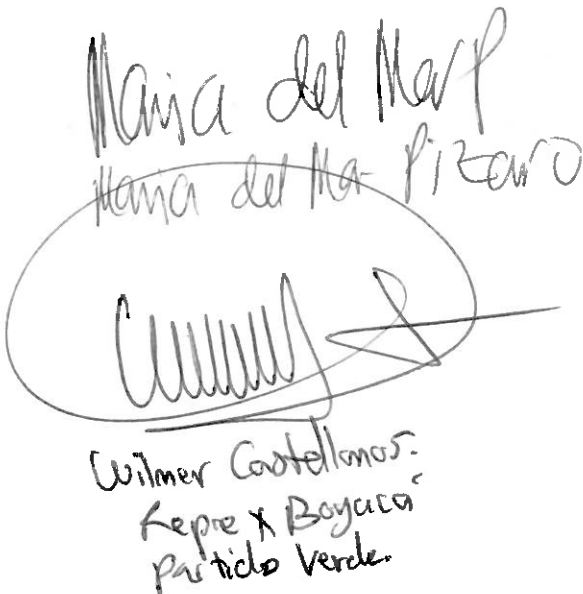 Maria del Mar P
Maria del Mar Pizarro
Wilmer Castellanos.
Repre x Boyacá
Partido Verde.